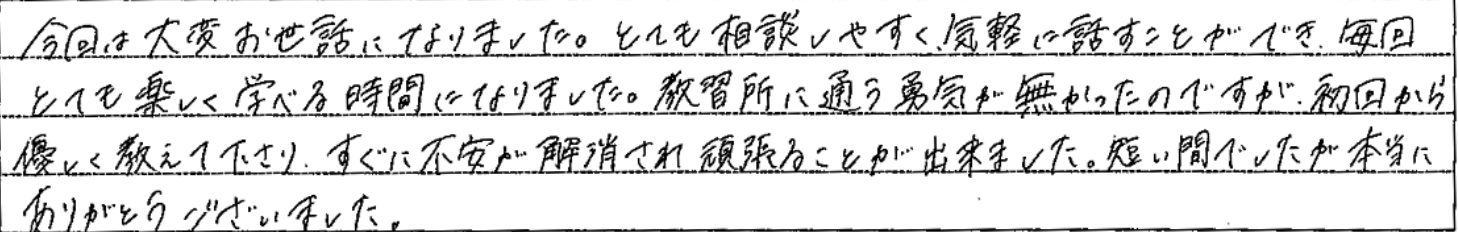 今回は大変お世話になりました。とても相談しやすく、気軽に話すことができ、毎回
とても楽しく学べる時間になりました。教習所に通う勇気が無かったのですが、初回から
優しく教えて下さり、すぐに不安が解消され頑張ることが出来ました。短い間でしたが本当に
ありがとうございました。